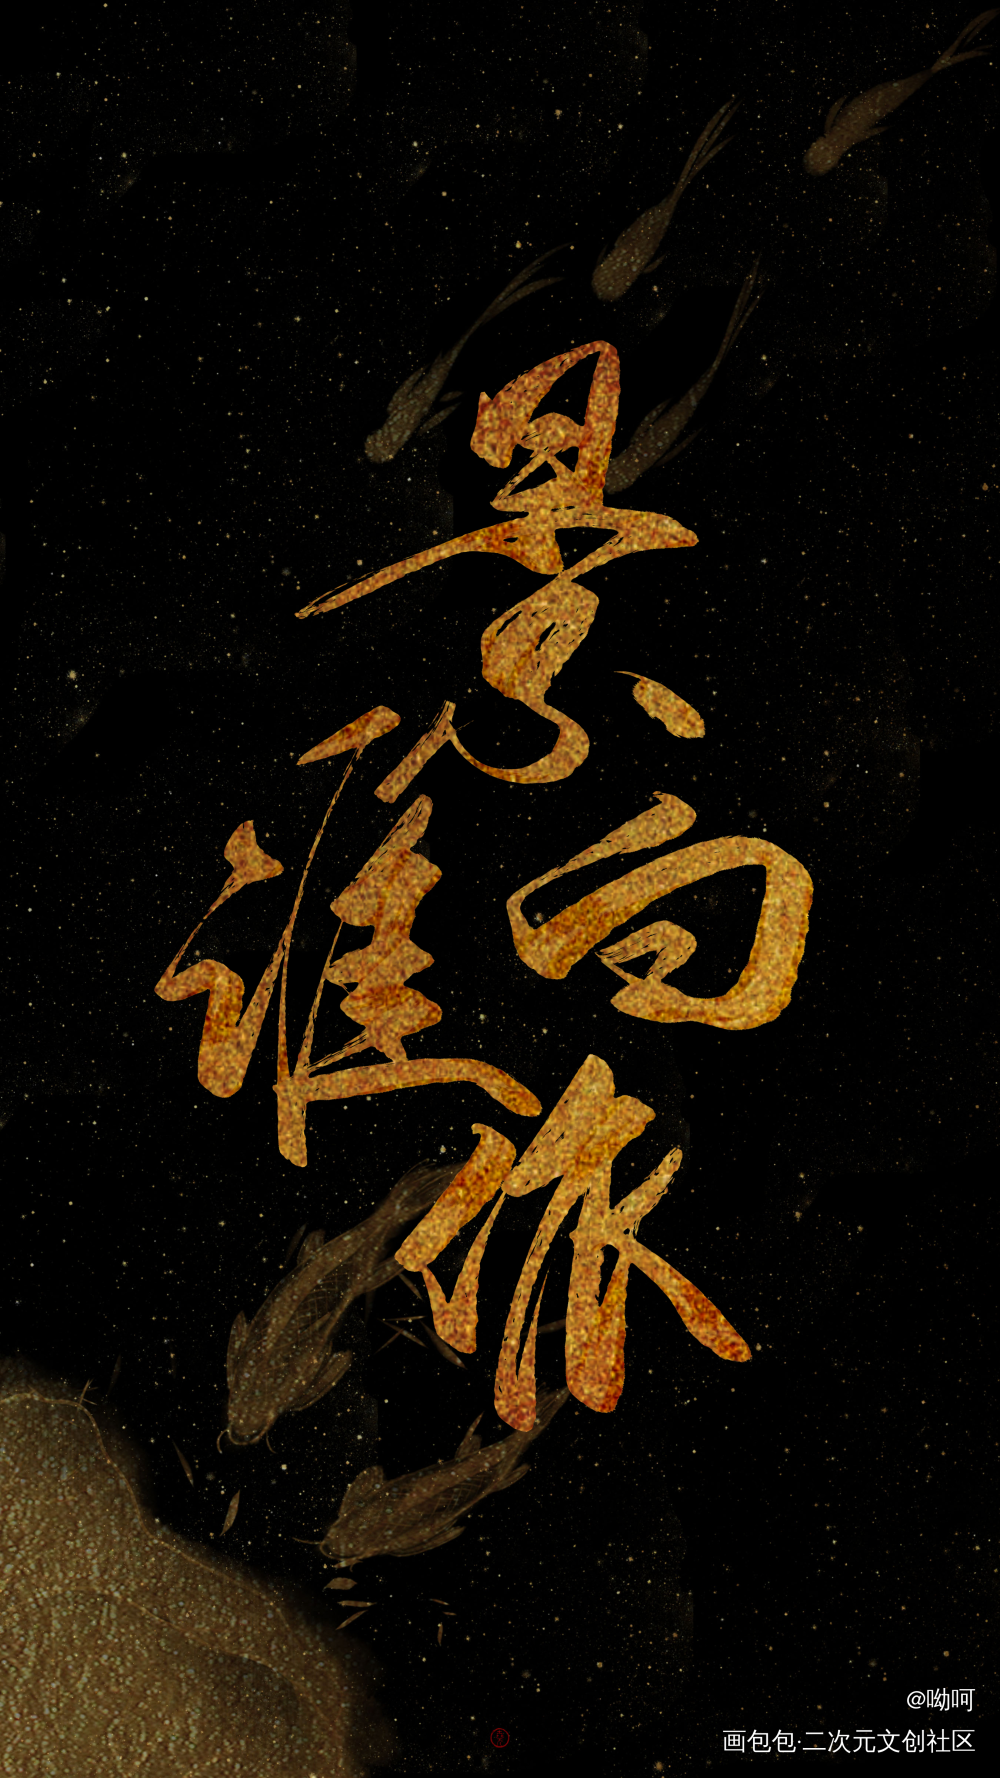 景向谁依
@呦呵
画包包·二次元文创社区